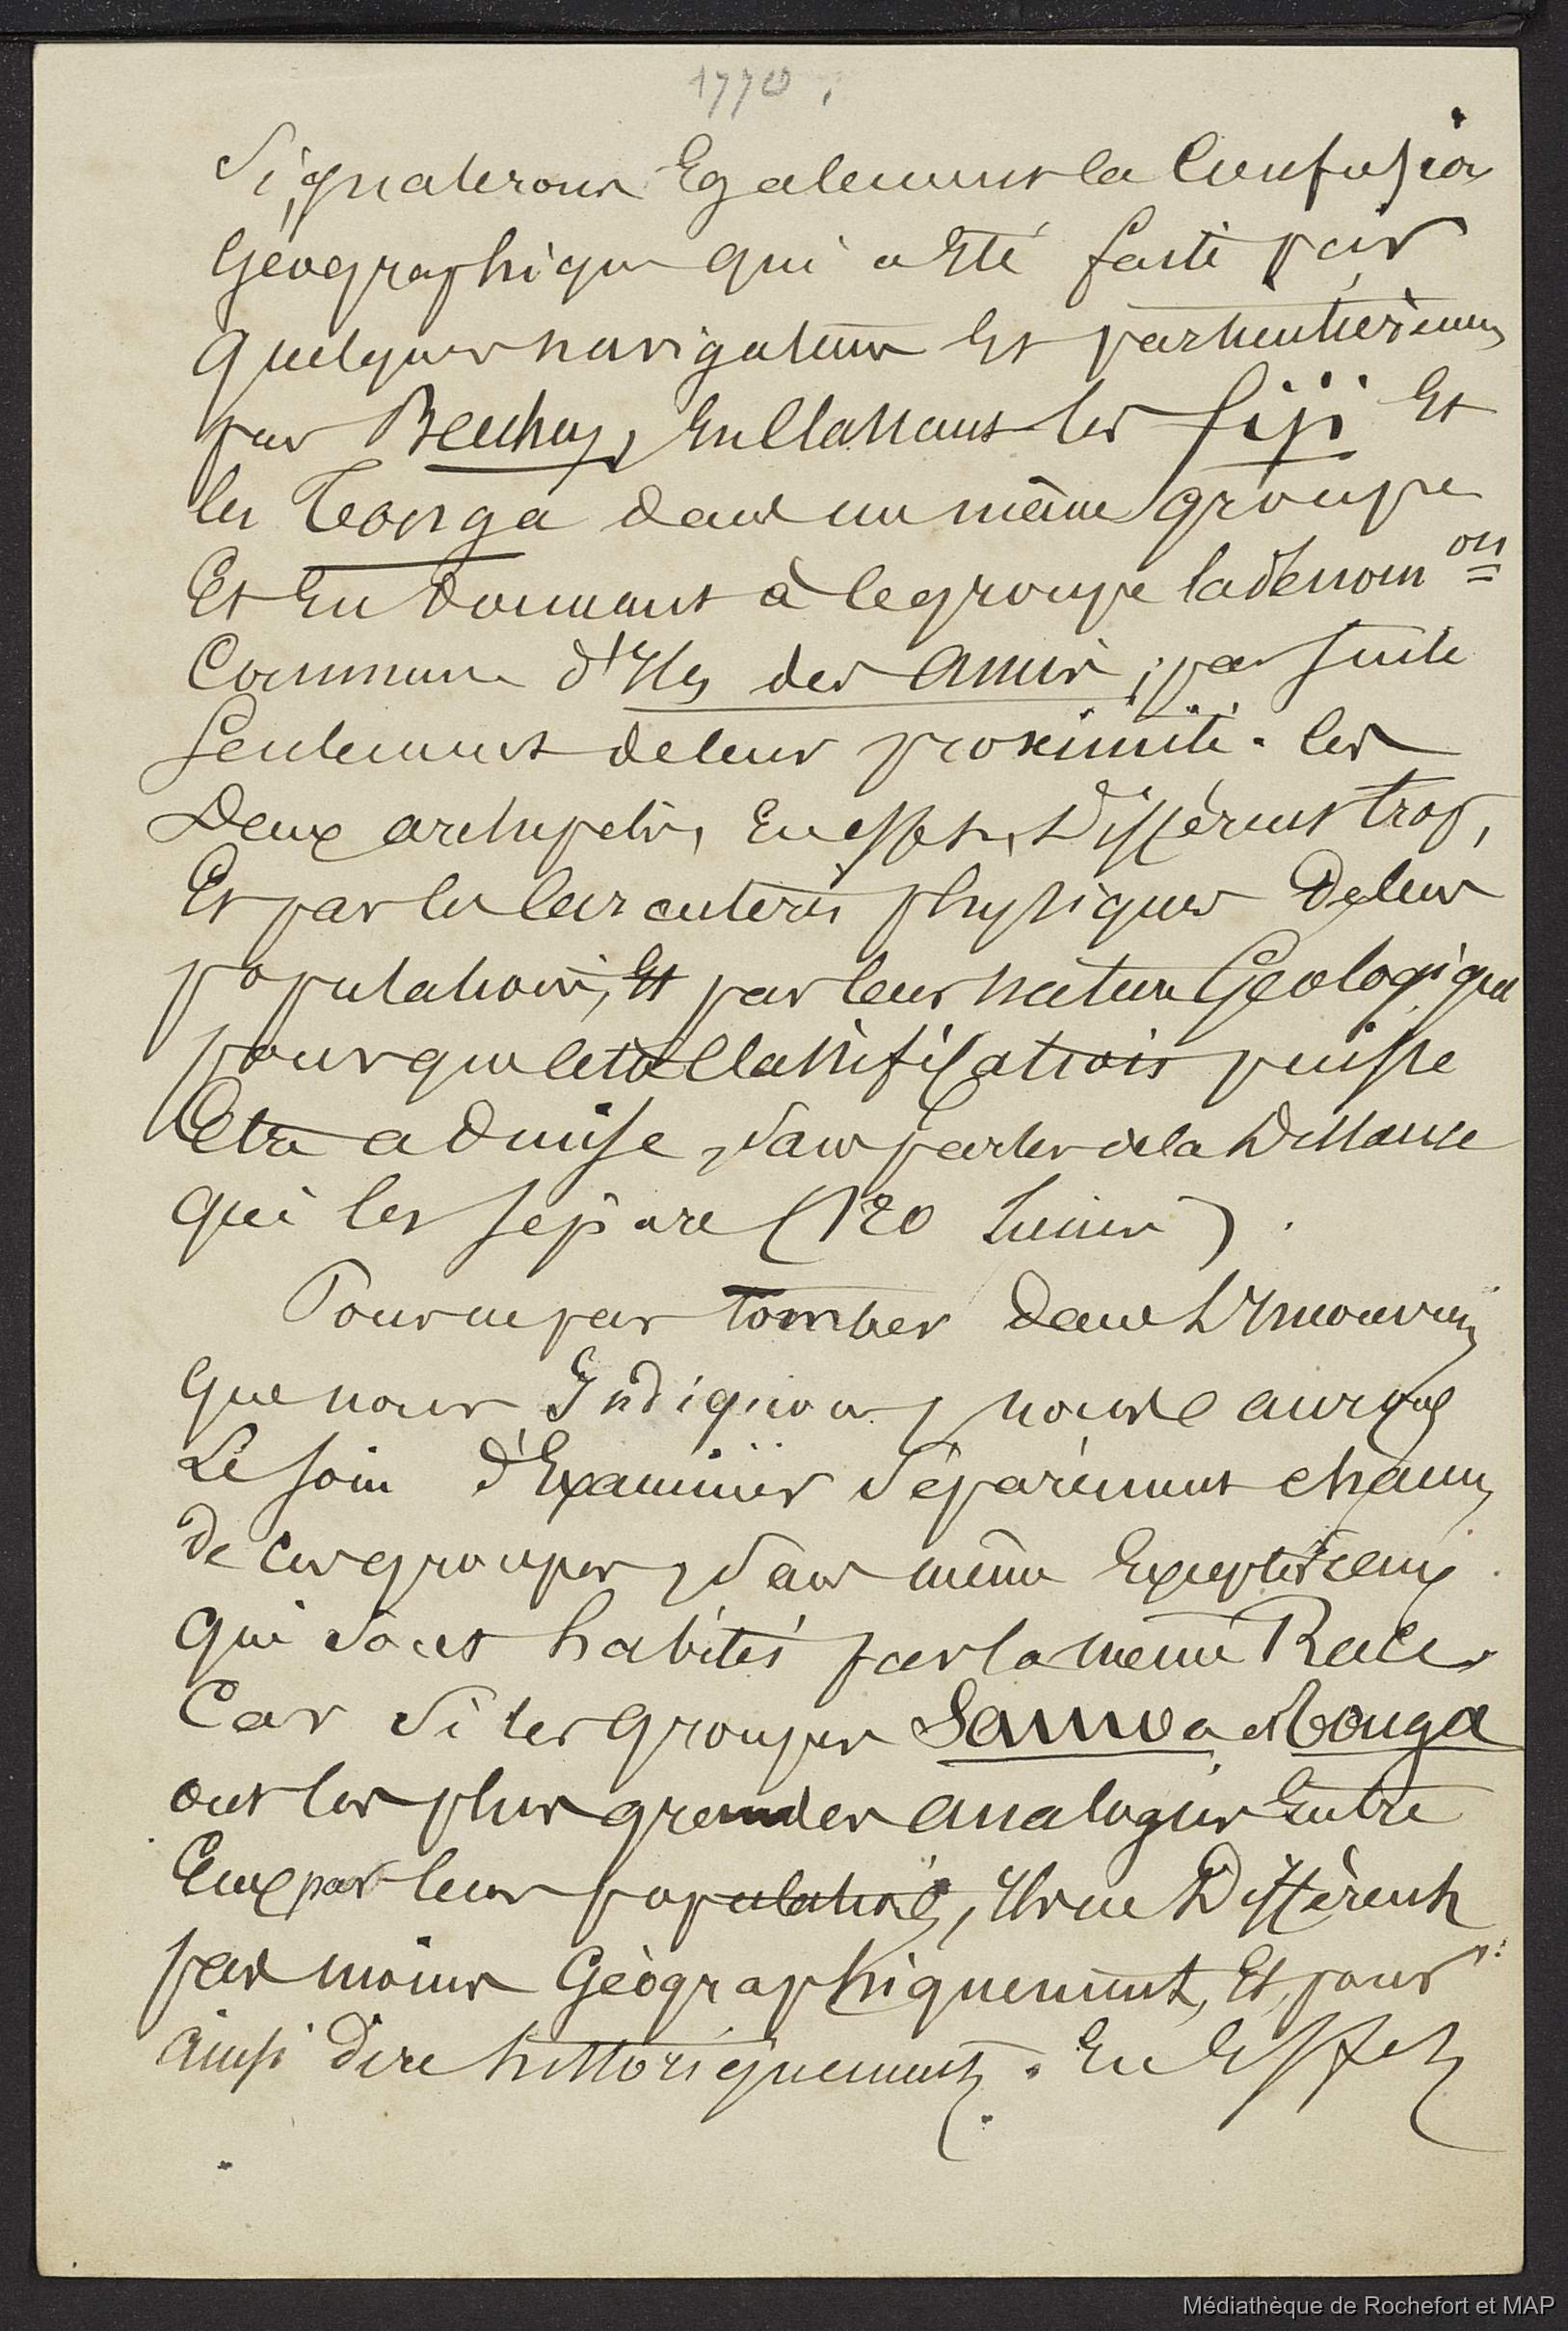 1770.
Signalerons Egalement la Confusion
Géographique qui a Eté faite par
quelques navigateurs Et particulièremt
par Beechey, En classant les Fiji Et
les Tonga dans un même groupe
Et En donnant à ce groupe la dénomon
Commune d'Iles des Amis, par suite
seulement de leur proximité. les
Deux archipels, En effet, Différent trop,
Et par les caractères physiques De leurs
populations, Et par leur nature Géologique
pour que cette classification puisse
être admise, sans parler de la Distance
qui les sépare (120 lieues).
Pour ne pas tomber dans L'Inconvénient
que nous Indiquons, nous aurons
Le soin d'Examiner séparément chacun
de ces groupes, sans même Excepter ceux
qui sont habités par la même Race
Car si les groupes Samoa et Tonga
ont les plus grandes analogies Entre
Eux par leurs populations, Ils ne Diffèrent
pas moins Géographiquement, Et, pour
ainsi dire historiquement. En Effet
Médiathèque de Rochefort et MAP